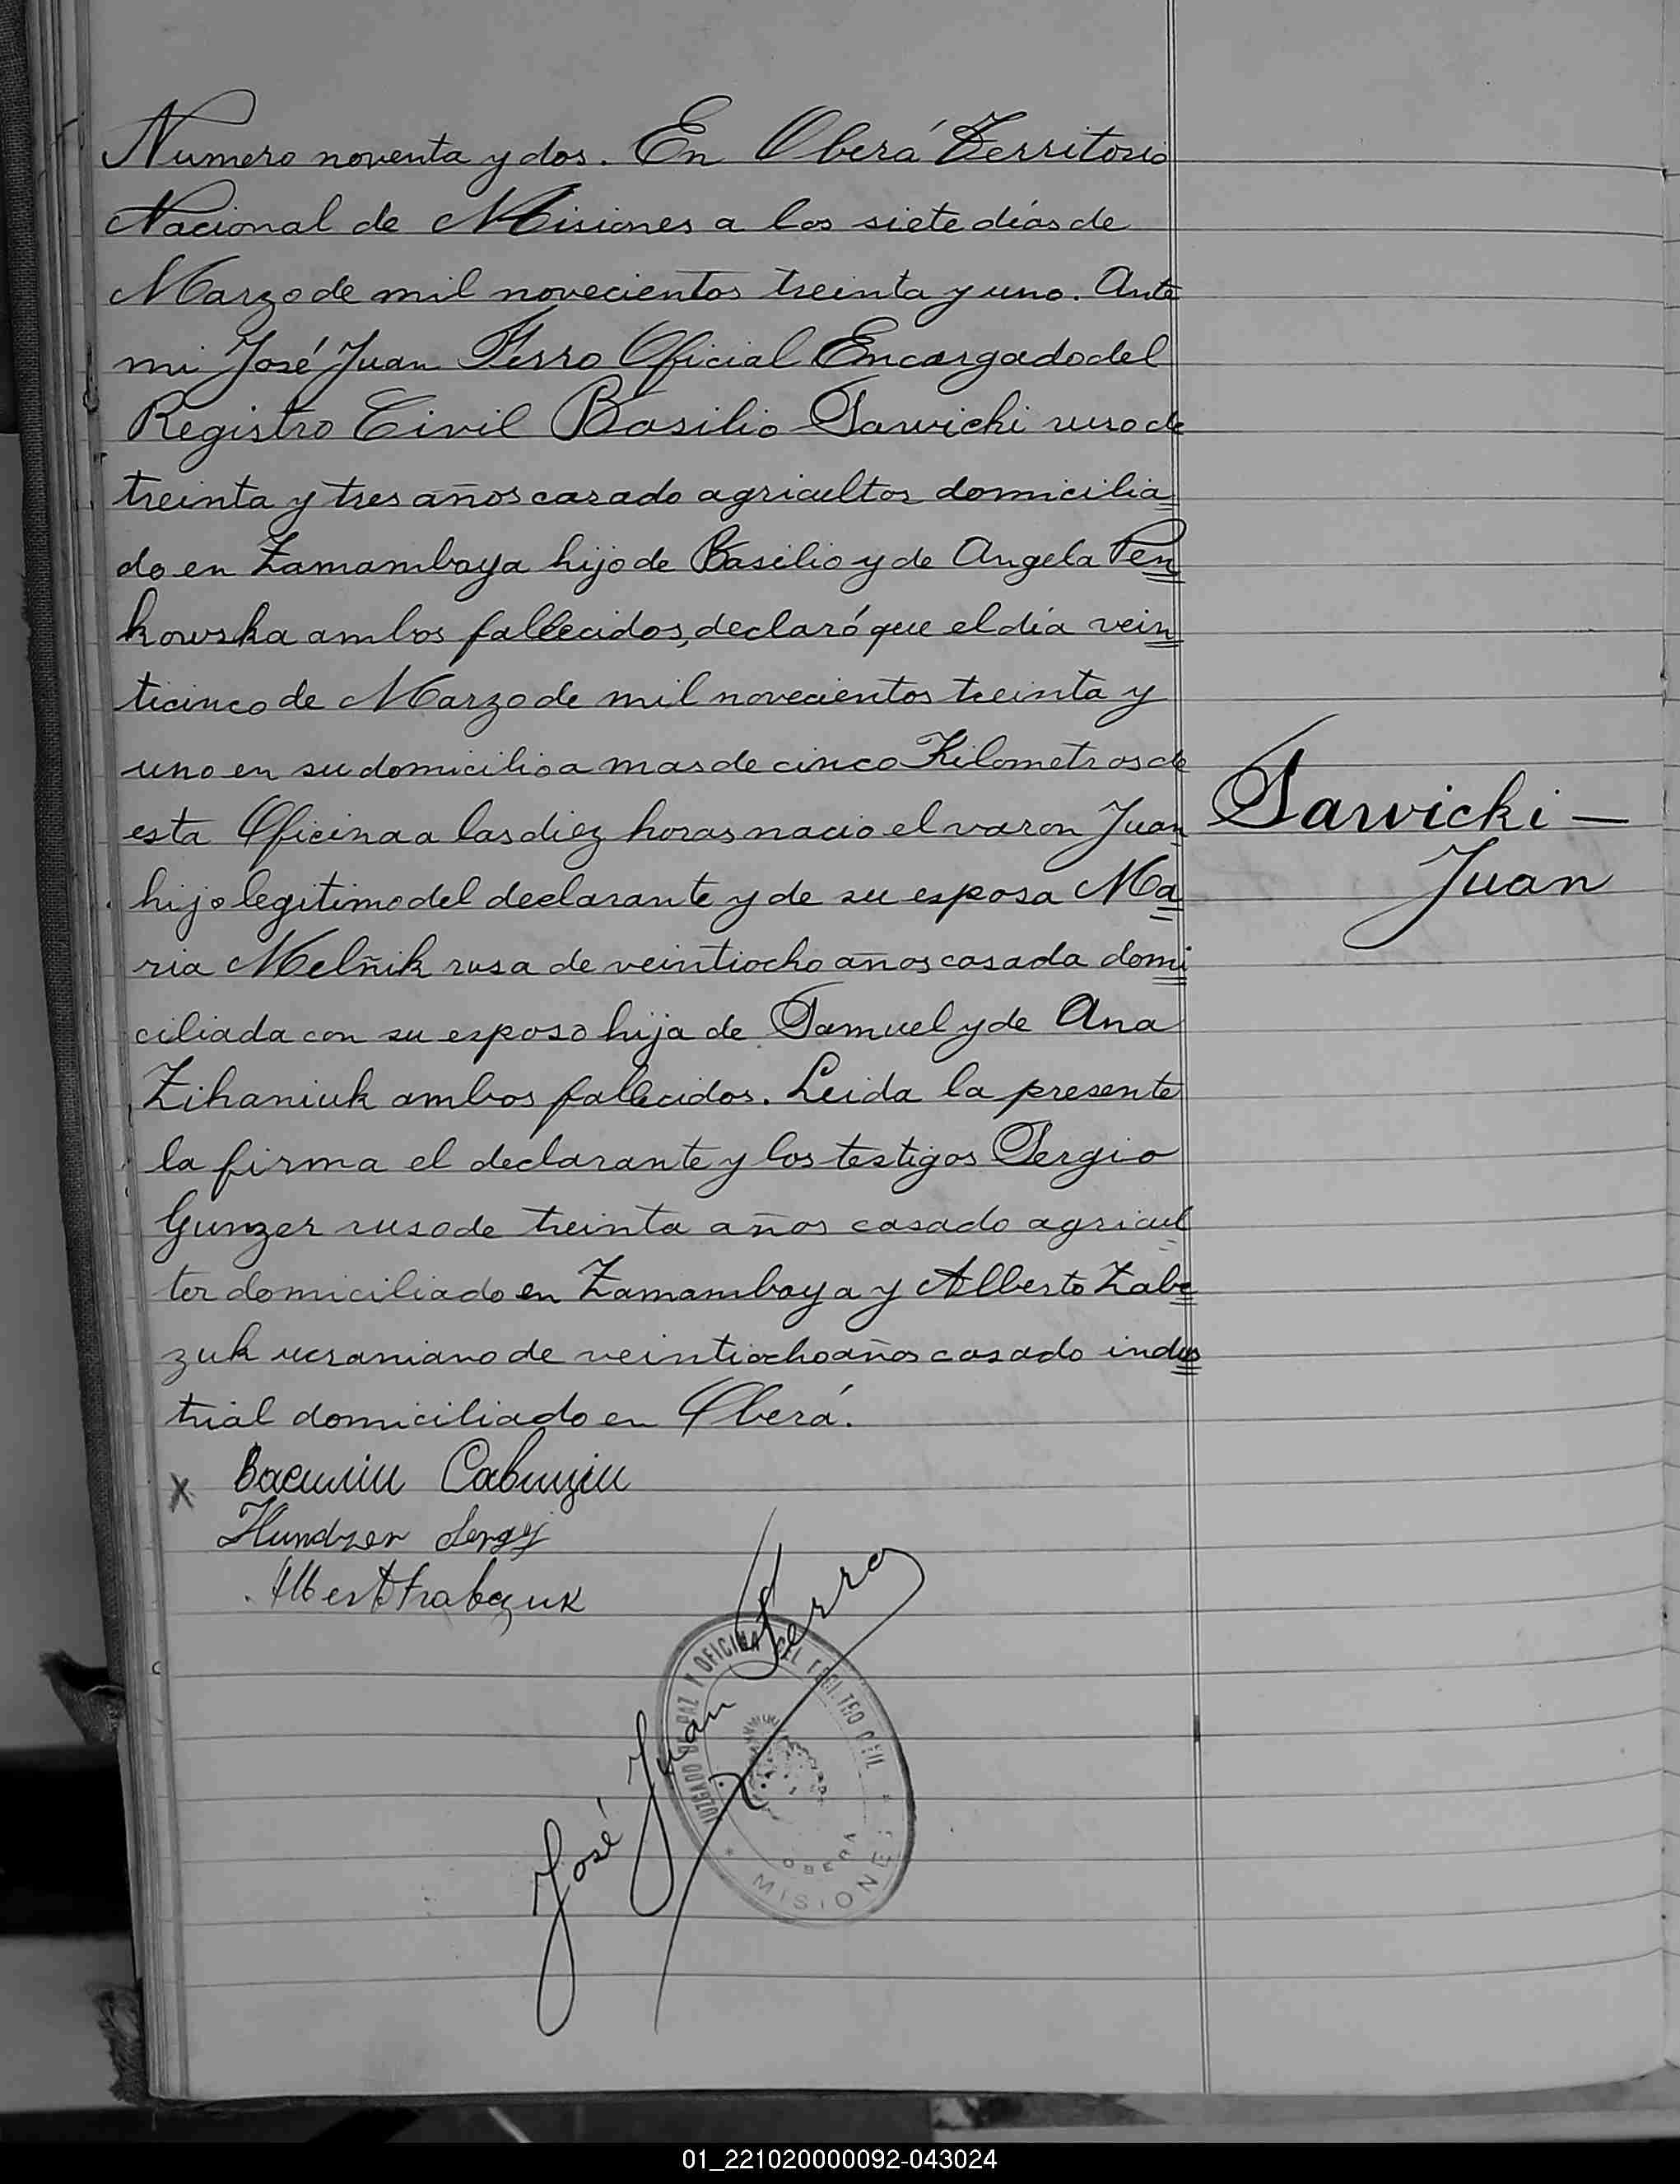 Numero noventa y dos. En Oberá Territorio
Nacional de Misiones a los siete días de
Marzo de mil novecientos treinta y uno. Ante
mi José Juan Ferro Oficial Encargado del
Registro Civil Basilio Sawicki ruso de
treinta y tres años casado agricultor domicilia
do en Zamambaya hijo de Basilio y de Angela Pen
kowska ambos fallecidos, declaró que el día vein
ticinco de Marzo de mil novecientos treinta y
uno en su domicilio a mas de cinco Kilometros de
esta Oficina a las diez horas nacio el varon Juan
hijo legitimo del declarante y de su esposa Ma
ria Melñik rusa de veintiocho años casada domi
ciliada con su esposo hija de Samuel y de Ana
Zihaniuk ambos fallecidos. Leida la presente
la firma el declarante y los testigos Sergio
Gunzer ruso de treinta años casado agricul
tor domiciliado en Zamambaya y Alberto Zabc
zuk ucraniano de veintiocho años casado indus
trial domiciliado en Oberá.
Sawicki —
Juan
x Василiй
Hundzer Sergj
Albert
José Juan Ferro
JUZGADO DE PAZ Y OFICINA DEL REGISTRO CIVIL
OBERA
* MISIONES *
01_221020000092-043024